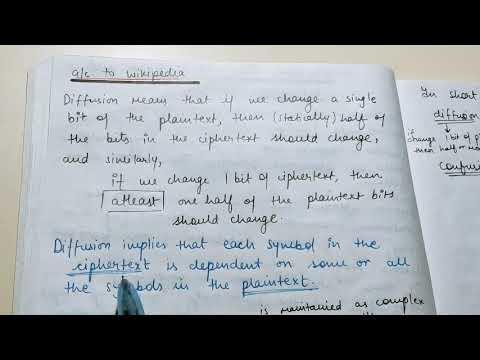 a/c to wikipedia
Diffusion means that if we change a single
bit of the plaintext, then (statically) half of
the bits in the ciphertext should change,
and similarly,
if we change 1 bit of ciphertext, then
atleast one half of the plaintext bits
should change.
Diffusion implies that each symbol in the
ciphertext is dependent on some or all
the symbols in the plaintext.
is maintained as complex
In short
diffusion
if
change 1 bit of
then half or